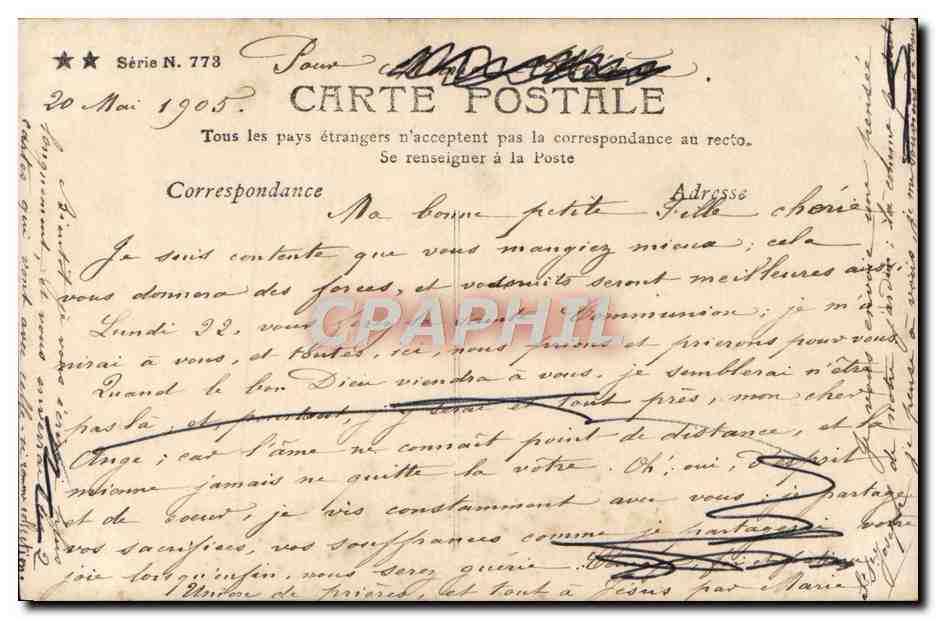 ★★ Série N. 773 Pour
20 Mai 1905.
CARTE POSTALE
Tous les pays étrangers n'acceptent pas la correspondance au recto.
Se renseigner à la Poste
Correspondance Adresse
Ma bonne petite Fille chérie
Je suis contente que vous mangiez mieux ; cela
vous donnera des forces, et vos nuits seront meilleures aussi.
Lundi 22, vous Communion ; je m'u-
nirai à vous, et toutes, ici, nous prions et prierons pour vous.
Quand le bon Dieu viendra à vous, je semblerai n'être
pas là, et pourtant, j'y serai et tout près, mon cher
Ange ; car l'âme ne connaît point de distance, et la
mienne jamais ne quitte la vôtre. Oh ! oui, d'esprit
et de coeur, je vis constamment avec vous ; je partage
vos sacrifices, vos souffrances comme je partagerai votre
joie lorsqu'enfin, nous serez guérie.
Union de prières, et tout à Jésus par Marie
Bientôt je vous écrirai plus
longuement, et vous enverrai
cartes qui vont avec celle-ci
Je vous envoie une pensée
de notre jardin ;
je pense à vous, je me souviens
CPAPHIL